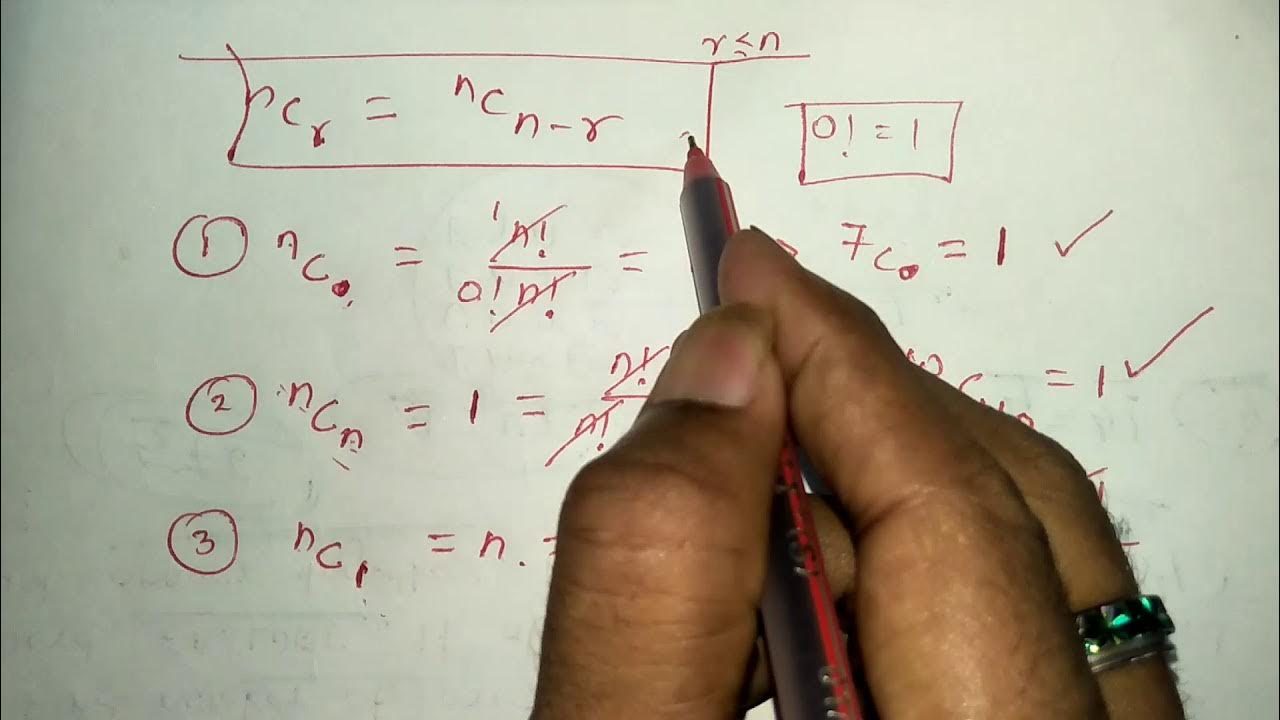 r ≤ n
nCr = nCn-r
0! = 1
① nC0 = n!/0! n! = 7C0 = 1 ✓
② nCn = 1 = n!/n! = 1 ✓
③ nC1 = n. =